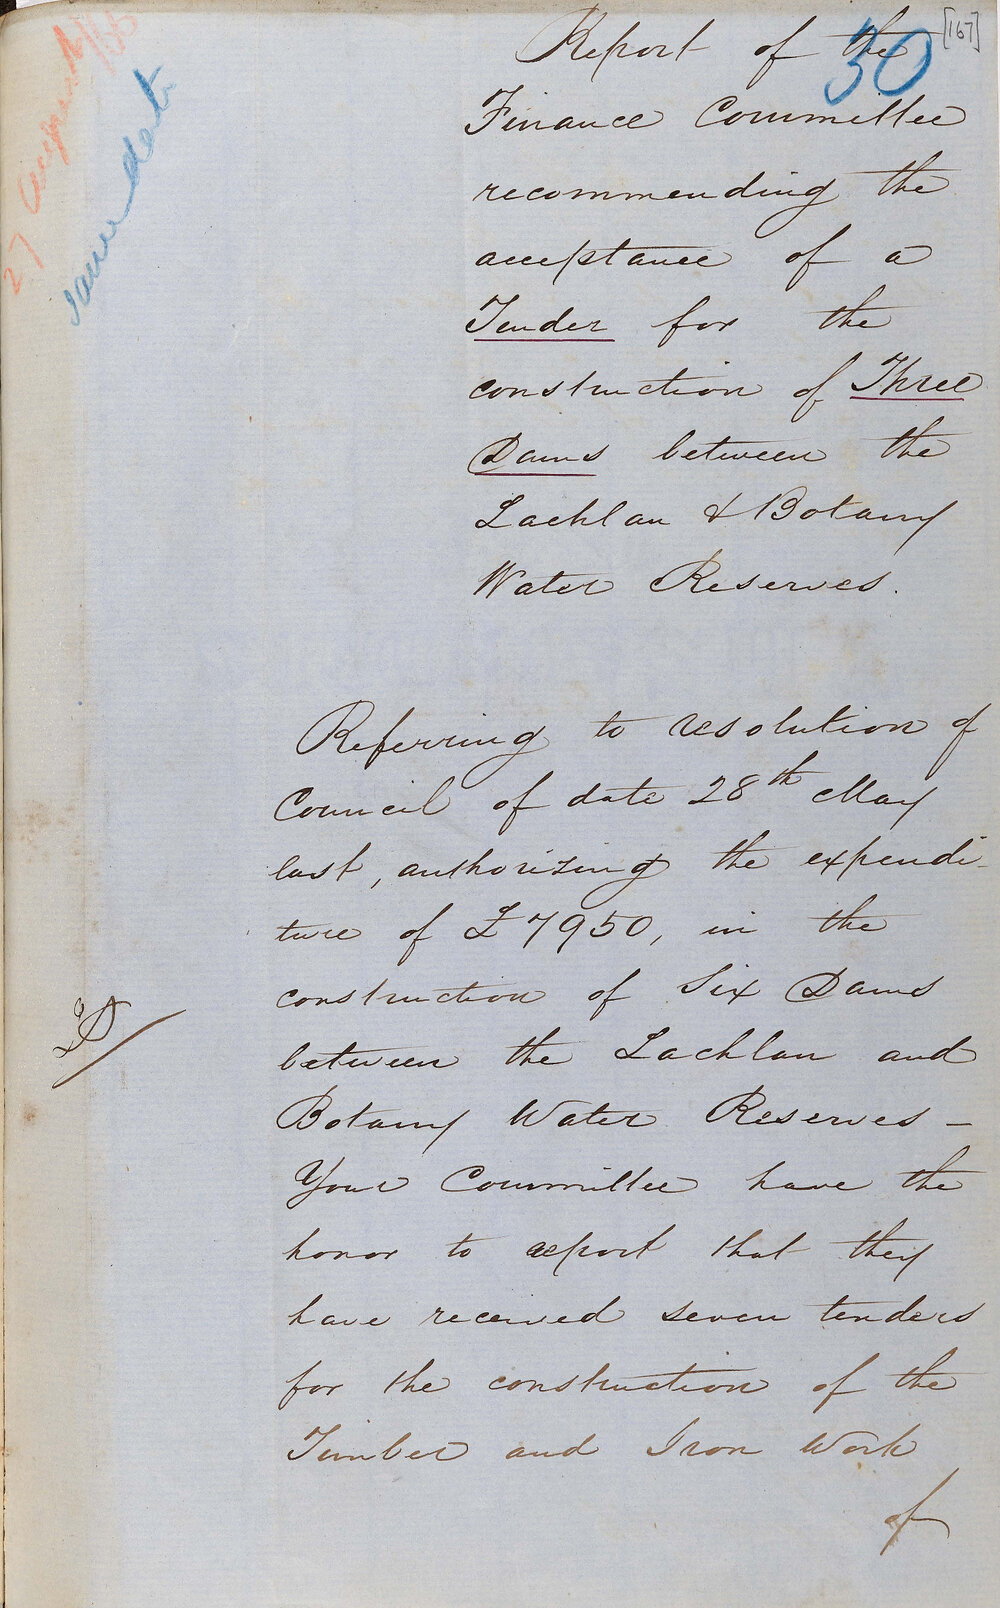 [167]
30
27 August/66
same date
Report of the
Finance Committee
recommending the
acceptance of a
Tender for the
construction of Three
Dams between the
Lachlan & Botany
Water Reserves.
Referring to resolution of
Council of date 28th May
last, authorizing the expendi-
ture of £7950, in the
construction of Six Dams
between the Lachlan and
Botany Water Reserves –
Your Committee have the
honor to report that they
have received seven tenders
for the construction of the
Timber and Iron Work
of